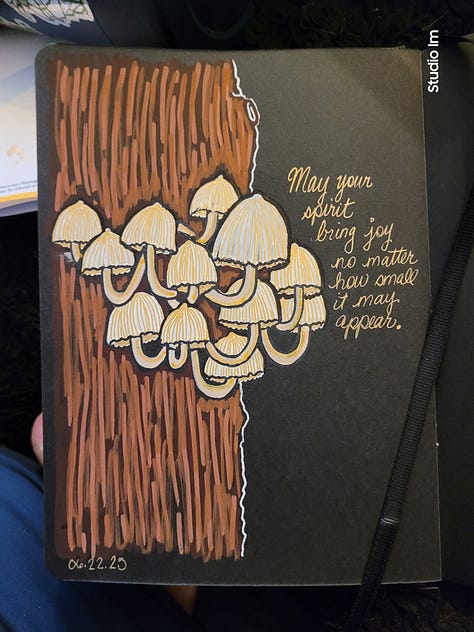 Studio Im
May your
spirit
bring joy
no matter
how small
it may
appear.
06.22.23